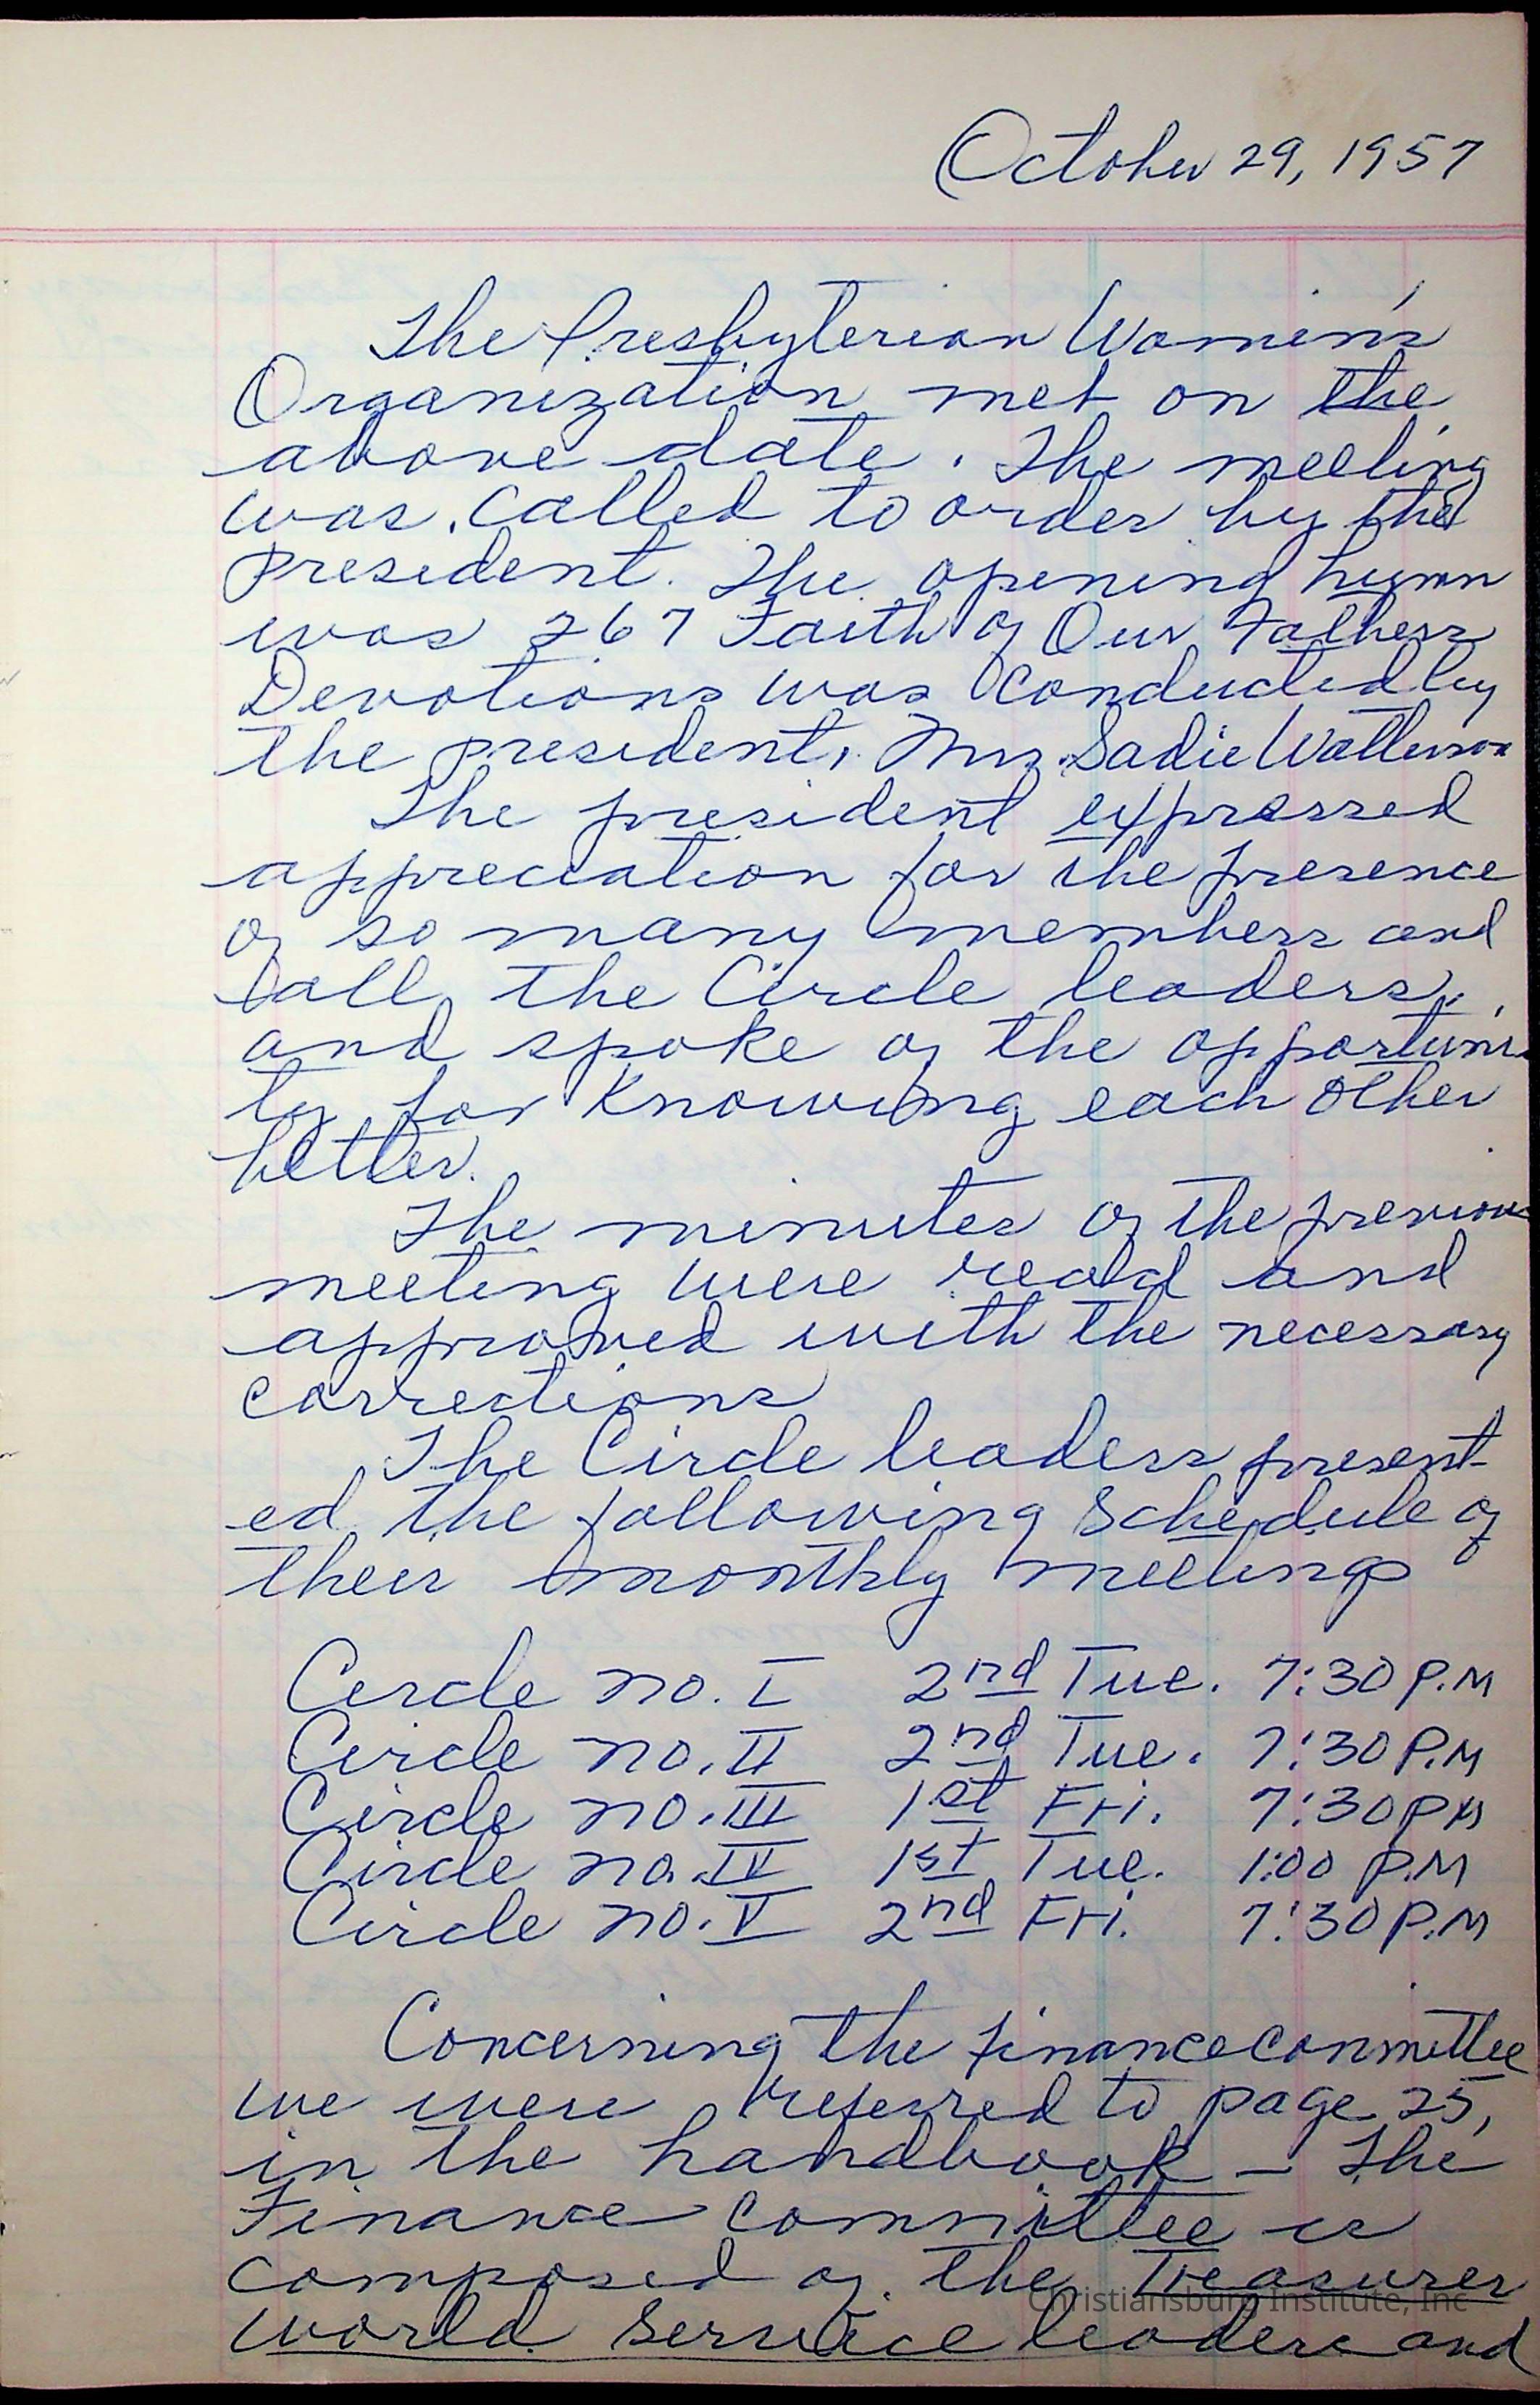 October 29, 1957
The Presbyterian Women's
Organization met on the
above date. The meeting
was called to order by the
president. The opening hymn
was 267 Faith of Our Fathers
Devotions was conducted by
the president, Mrs. Sadie Watterson
The president expressed
appreciation for the presence
of so many members and
all the Circle leaders,
and spoke of the opportuni-
ty for knowing each other
better.
The minutes of the previous
meeting were read and
approved with the necessary
corrections
The Circle leaders present-
ed the following schedule of
their monthly meetings
Circle no. I 2nd Tue. 7:30 P.M
Circle no. II 2nd Tue. 7:30 P.M
Circle no. III 1st Fri. 7:30 PM
Circle no. IV 1st Tue. 1:00 P.M
Circle no. V 2nd Fri. 7:30 P.M
Concerning the finance committee
we were referred to page 25,
in the handbook - The
Finance committee is
composed of the Treasurer
world service leaders and
Christiansburg Institute, Inc